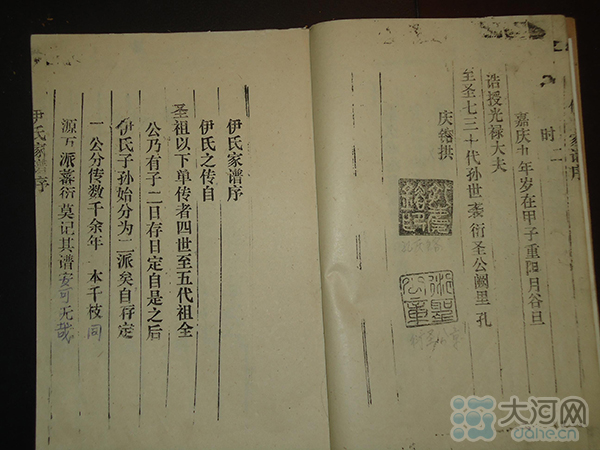 时二
嘉庆九年岁在甲子重阳月谷旦
浩授光禄大夫
至圣七三十代孙世袭衍圣公阙里孔
庆镕拱
伊氏家谱序
伊氏之传自
圣祖以下单传者四世至五代祖全
公乃有子二曰存曰定自是之后
伊氏子孙始分为二派矣自存定
一公分传数千余年 本千枝同
源万派蕃衍莫记其谱安可无哉
伊氏家谱序
大河网
dahe.cn